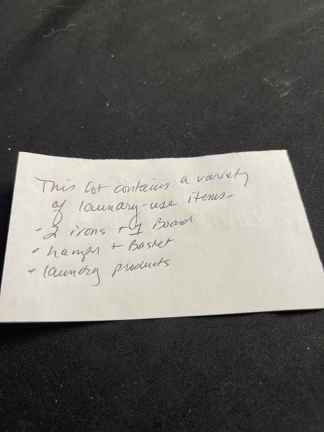 This lot contains a variety
of laundry-use items-
• 2 irons + 1 Board
• hamper + Basket
• laundry products